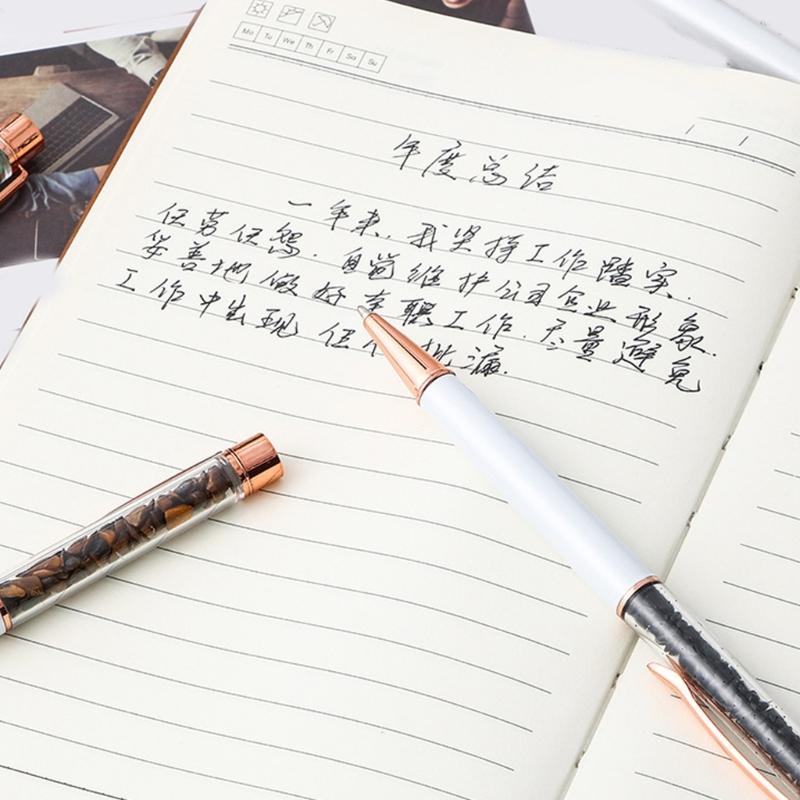 Mo Tu We Th Fr Sa Su
年度总结
一年来，我坚持工作踏实，
任劳任怨，自觉维护公司企业形象，
妥善地做好本职工作，尽量避免
工作中出现任何纰漏。